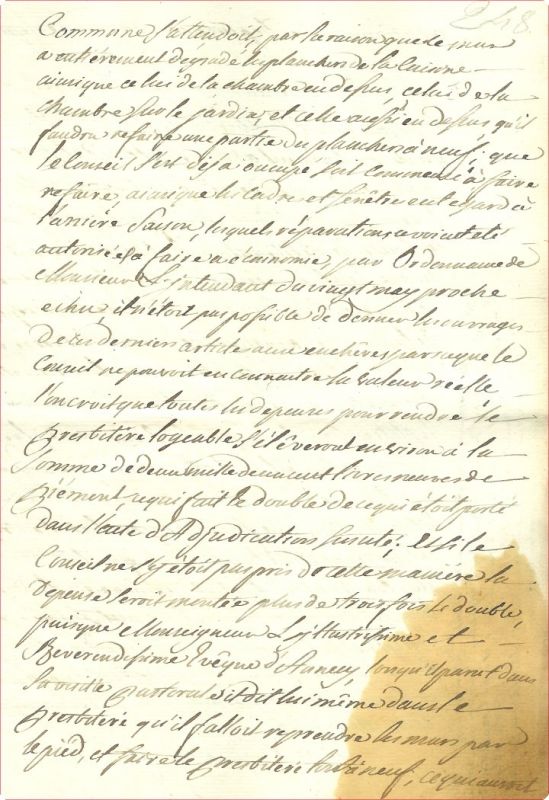 248.
Commune s'attendoit, par la raison que le mur
a entiérement dégradé les planchers de la Cuisine
ainsique celui de la chambre en dessus, celui de la
chambre sur le jardin, et celle aussi en dessus, qu'il
faudra refaire une partie du plancher à neuf; que
le Conseil s'est déja occupé soit commencé à faire
refaire, ainsique les Cadres et fenêtre eu égard à
l'arriére Saison, lesquels réparations avoient été
autorisées à faire a économie, par Ordonnance de
Monsieur L'intendant du vingt may proche
echu, il n'étoit pas possible de donner les ouvrages
de ces derniers article aux enchéres parceque le
Conseil ne pouvoit en connaitre la valeur réélle
l'on croit que toutes les depenses pour rendre le
presbitére logeable s'éléveront environ à la
Somme de deux mille deux cent livres neuves de
piémont, ce qui fait le double de ce qui étoit porté
dans l'acte d'Adjudication susdité; et si le
Conseil ne s'y étoit pas pris de cette maniére la
depense seroit montée plus de trois fois le double,
puisque Monseigneur L'yllustrissime et
Reverendissime Evêque d'Annecy, lorsqu'il parut dans
sa visite pastorale it dit lui même dans le
presbitére qu'il falloit reprendre les murs par
le piéd, et faire le presbitére tout à neuf, ce qui auroit